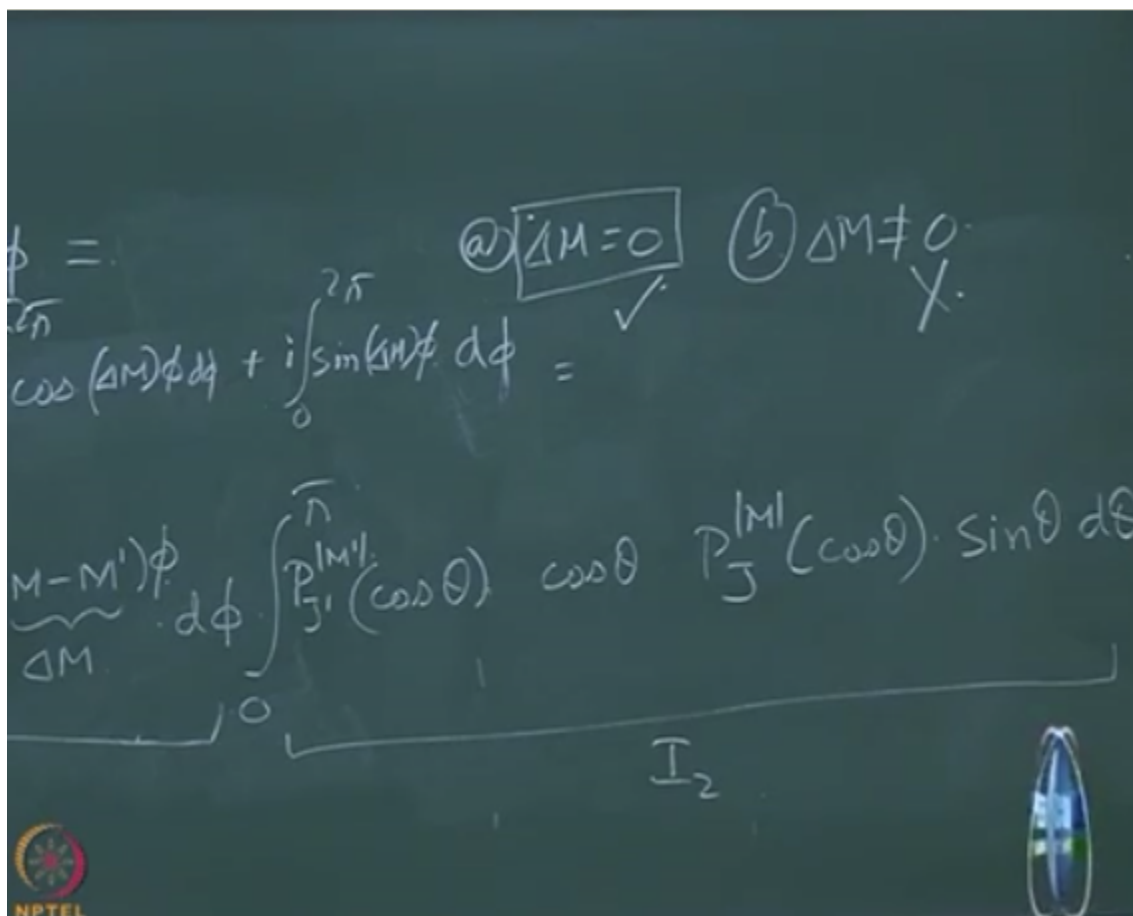 ϕ =
ⓐ ΔM = 0 ✓ ⓑ ΔM ≠ 0. X.
2π
cos (ΔM)ϕ dϕ + i ∫₀^{2π} sin (ΔM)ϕ dϕ =
M - M')ϕ dϕ ∫₀^π P_{J'}^{|M'|} (cos θ) cos θ P_J^{|M|} (cos θ) . sin θ dθ
ΔM
I₂
NPTEL